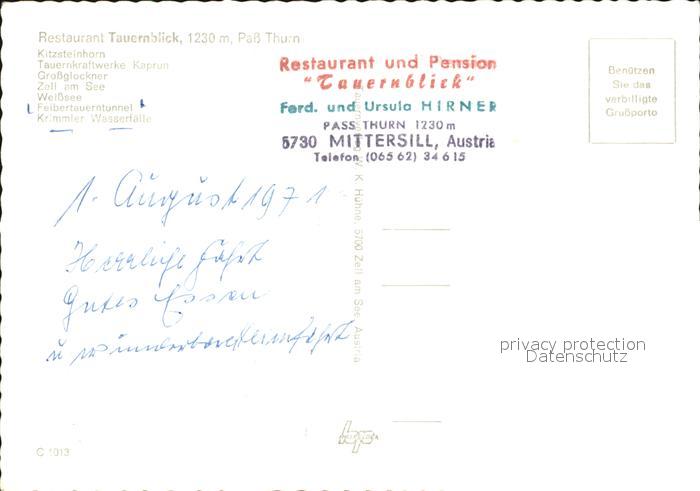 Restaurant Tauernblick, 1230 m, Paß Thurn
Kitzsteinhorn
Tauernkraftwerke Kaprun
Großglockner
Zell am See
Weißsee
Felbertauerntunnel
Krimmler Wasserfälle
Restaurant und Pension
"Tauernblick"
Ferd. und Ursula HIRNER
PASS THURN 1230 m
5730 MITTERSILL, Austria
Telefon (065 62) 34 6 15
Benützen
Sie das
verbilligte
Grußporto
1. August 1971
Herrliche Fahrt
Gutes Essen
u wunderbare Heimfahrt
W. K. Hühne, 5700 Zell am See, Austria
privacy protection
Datenschutz
C 1013